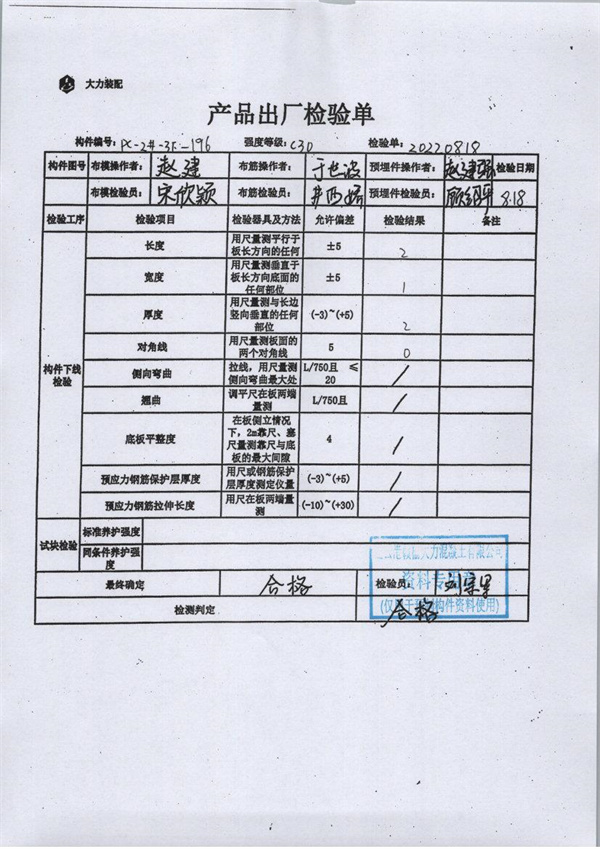 大力装配
产品出厂检验单
构件编号: PC-2#-3F-196 强度等级: C30 检验单: 20220818
构件图号 布模操作者: 赵建 布筋操作者: 于世波 预埋件操作者: 赵建强 检验日期
布模检验员: 宋欣颖 布筋检验员: 预埋件检验员: 8.18
检验工序 检验项目 检验器具及方法 允许偏差 检验结果 备注
构件下线检验
长度 用尺量测平行于板长方向的任何 ±5 2
宽度 用尺量测垂直于板长方向底面的任何部位 ±5 1
厚度 用尺量测与长边竖向垂直的任何部位 (-3)~(+5) 2
对角线 用尺量测板面的两个对角线 5 0
侧向弯曲 拉线，用尺量测侧向弯曲最大处 L/750且 ≤20 /
翘曲 调平尺在板两端量测 L/750且 /
底板平整度 在板侧立情况下，2m靠尺、塞尺量测靠尺与底板的最大间隙 4 /
预应力钢筋保护层厚度 用尺或钢筋保护层厚度测定仪量 (-3)~(+5) /
预应力钢筋拉伸长度 用尺在板两端量测 (-10)~(+30) /
试块检验 标准养护强度
同条件养护强度
最终确定 合格 检验员:
检测判定 合格
大力混凝土有限公司
资料专用章
构件资料使用)